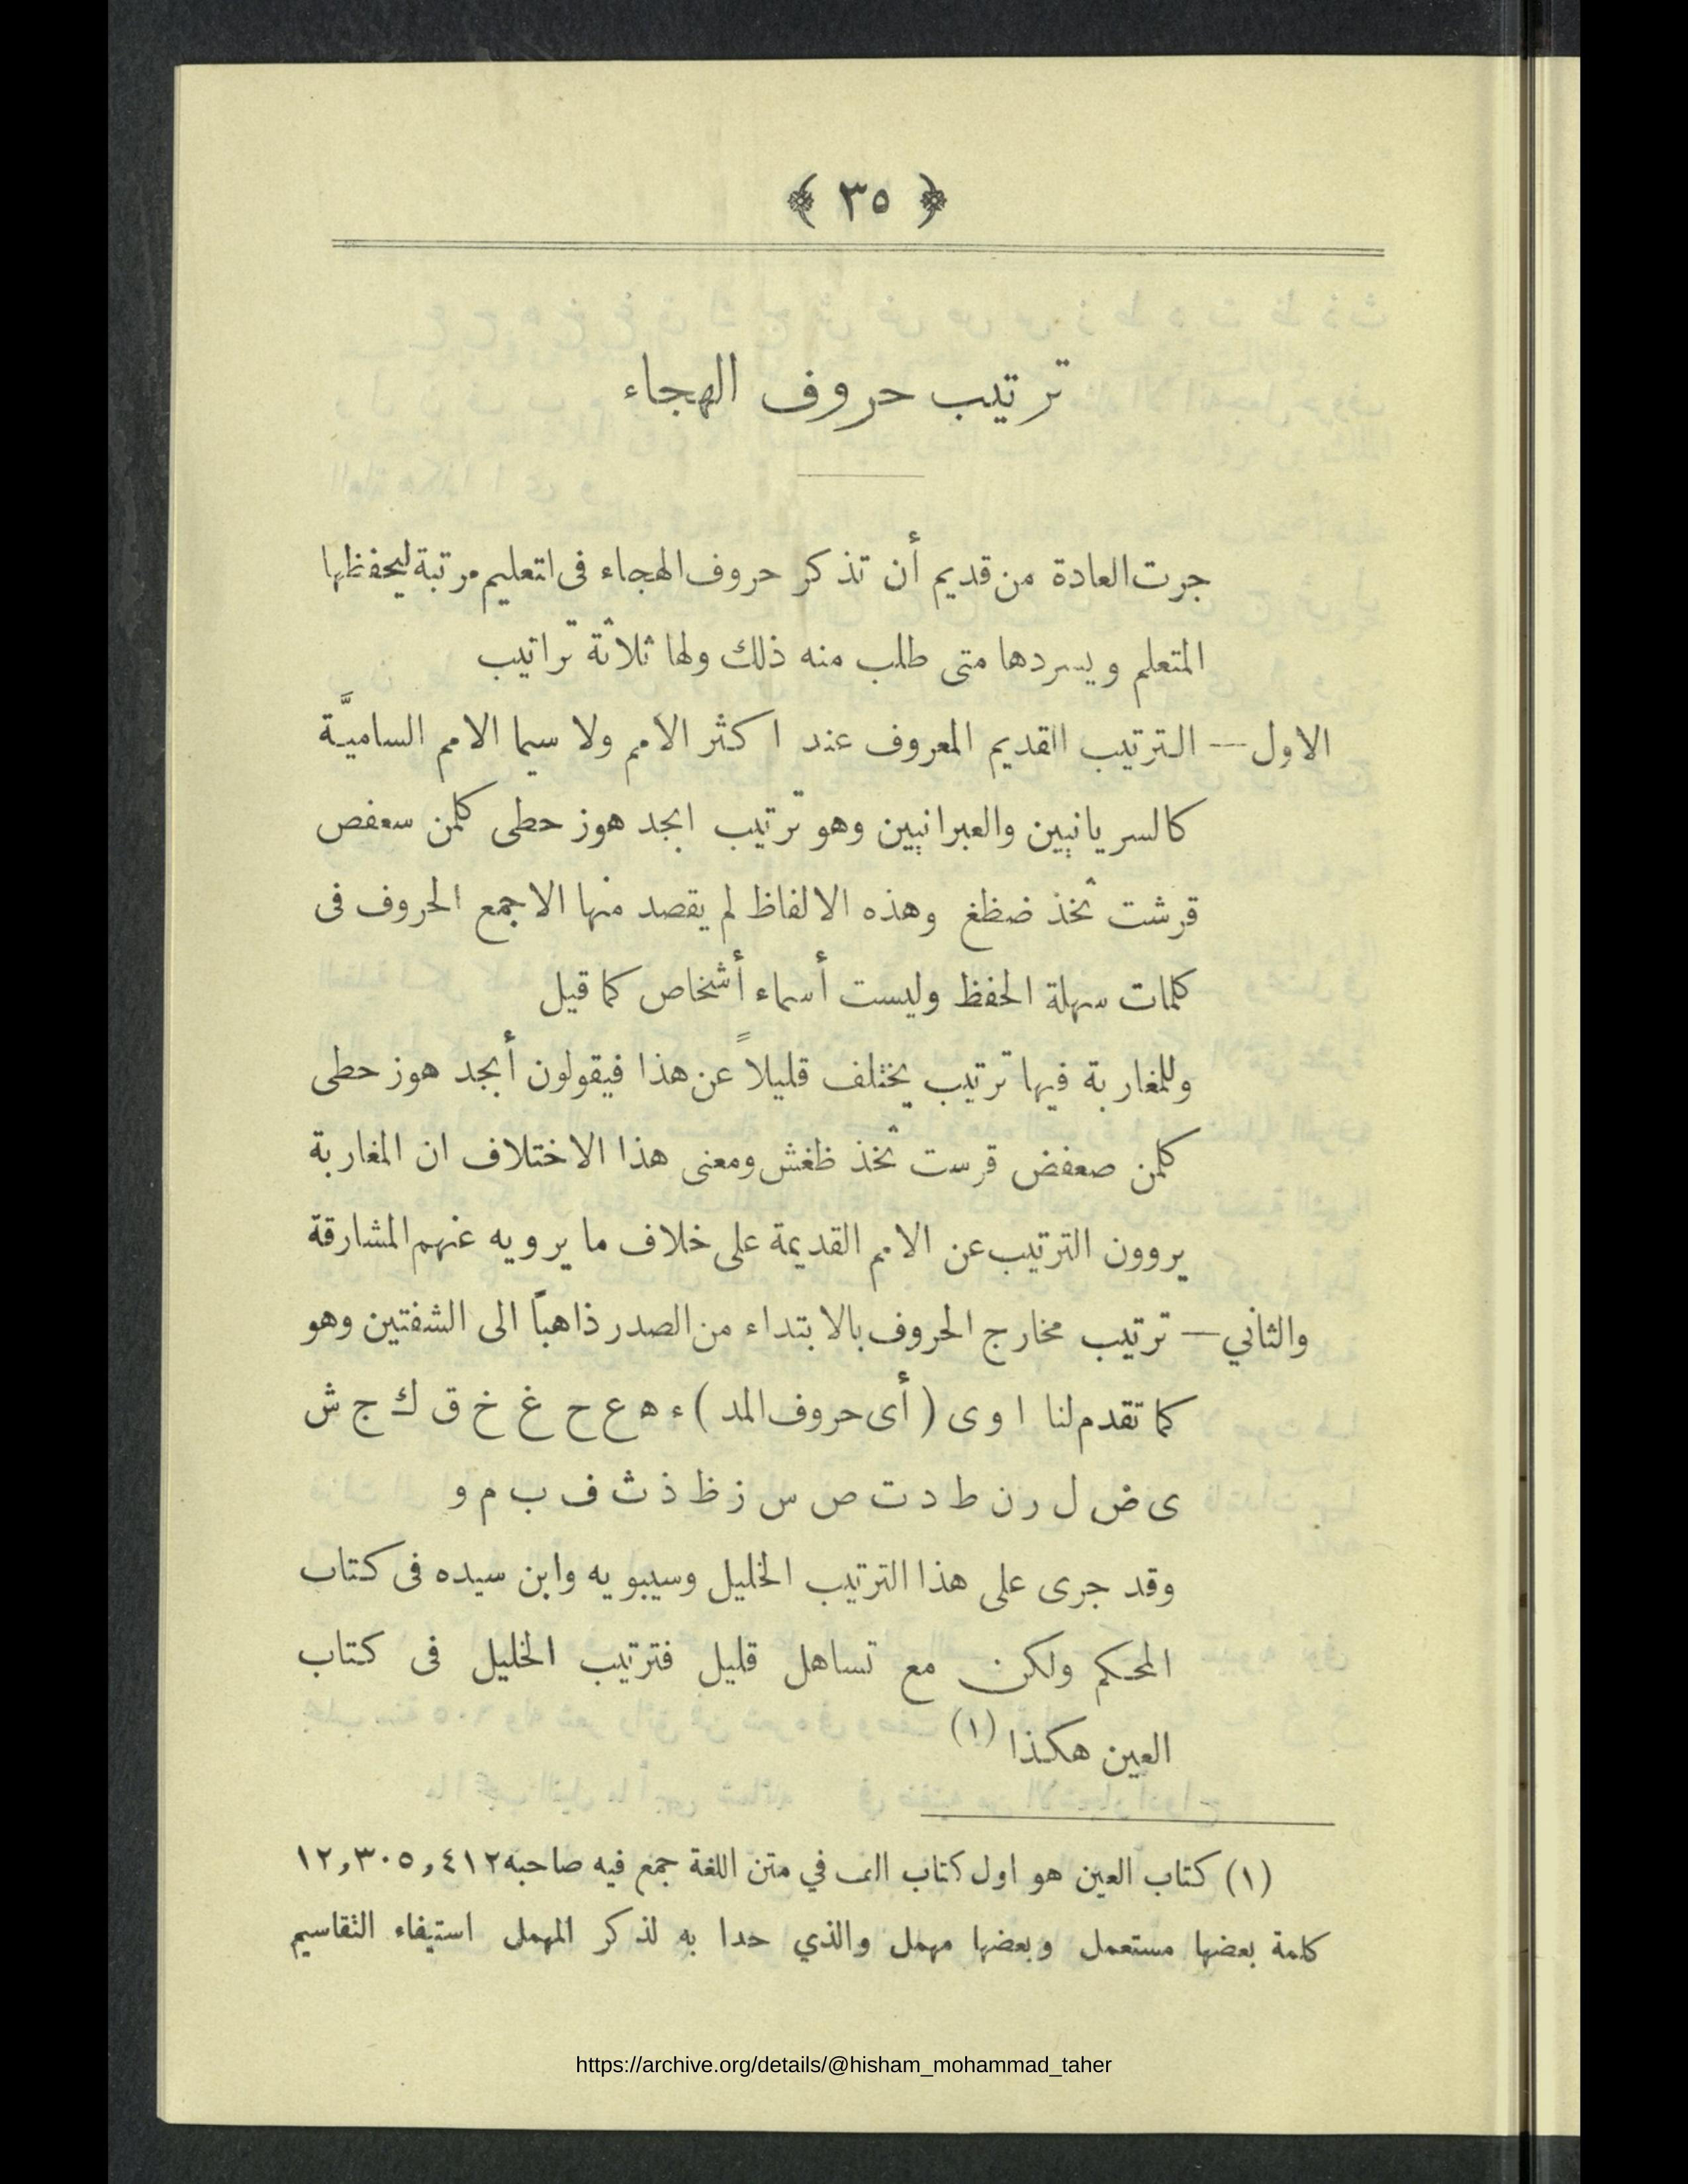 ﴿ ٣٥ ﴾
ترتيب حروف الهجاء
جرت العادة من قديم أن تذكر حروف الهجاء فى التعليم مرتبة ليحفظها
المتعلم ويسردها متى طلب منه ذلك ولها ثلاثة تراتيب
الاول — الترتيب القديم المعروف عند اكثر الامم ولا سيما الامم الساميَّة
كالسريانيين والعبرانيين وهو ترتيب ابجد هوز حطى كلمن سعفص
قرشت ثخذ ضظغ وهذه الالفاظ لم يقصد منها الا جمع الحروف فى
كلمات سهلة الحفظ وليست أسماء أشخاص كما قيل
وللمغاربة فيها ترتيب يختلف قليلاً عن هذا فيقولون أبجد هوز حطى
كلمن صعفض قرست ثخذ ظغش ومعنى هذا الاختلاف ان المغاربة
يروون الترتيب عن الامم القديمة على خلاف ما يرويه عنهم المشارقة
والثاني — ترتيب مخارج الحروف بالابتداء من الصدر ذاهباً الى الشفتين وهو
كما تقدم لنا ا و ى ( أى حروف المد ) ء ه ع ح غ خ ق ك ج ش
ى ض ل ر ن ط د ت ص س ز ظ ذ ث ف ب م و
وقد جرى على هذا الترتيب الخليل وسيبويه وابن سيده فى كتاب
المحكم ولكن مع تساهل قليل فترتيب الخليل فى كتاب
العين هكذا (١)
(١) كتاب العين هو اول كتاب الف في متن اللغة جمع فيه صاحبه ١٢,٣٠٥,٤١٢
كلمة بعضها مستعمل وبعضها مهمل والذي حدا به لذكر المهمل استيفاء التقاسيم
https://archive.org/details/@hisham_mohammad_taher